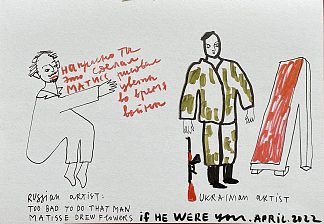 напрасно ты
это сделал
МАТИСС рисовал
цветы
во время
войны
RUSSIAN ARTIST:
TOO BAD TO DO THAT MAN
MATISSE DREW FLOWERS
UKRAINIAN ARTIST
if HE WERE you. APRIL.2022